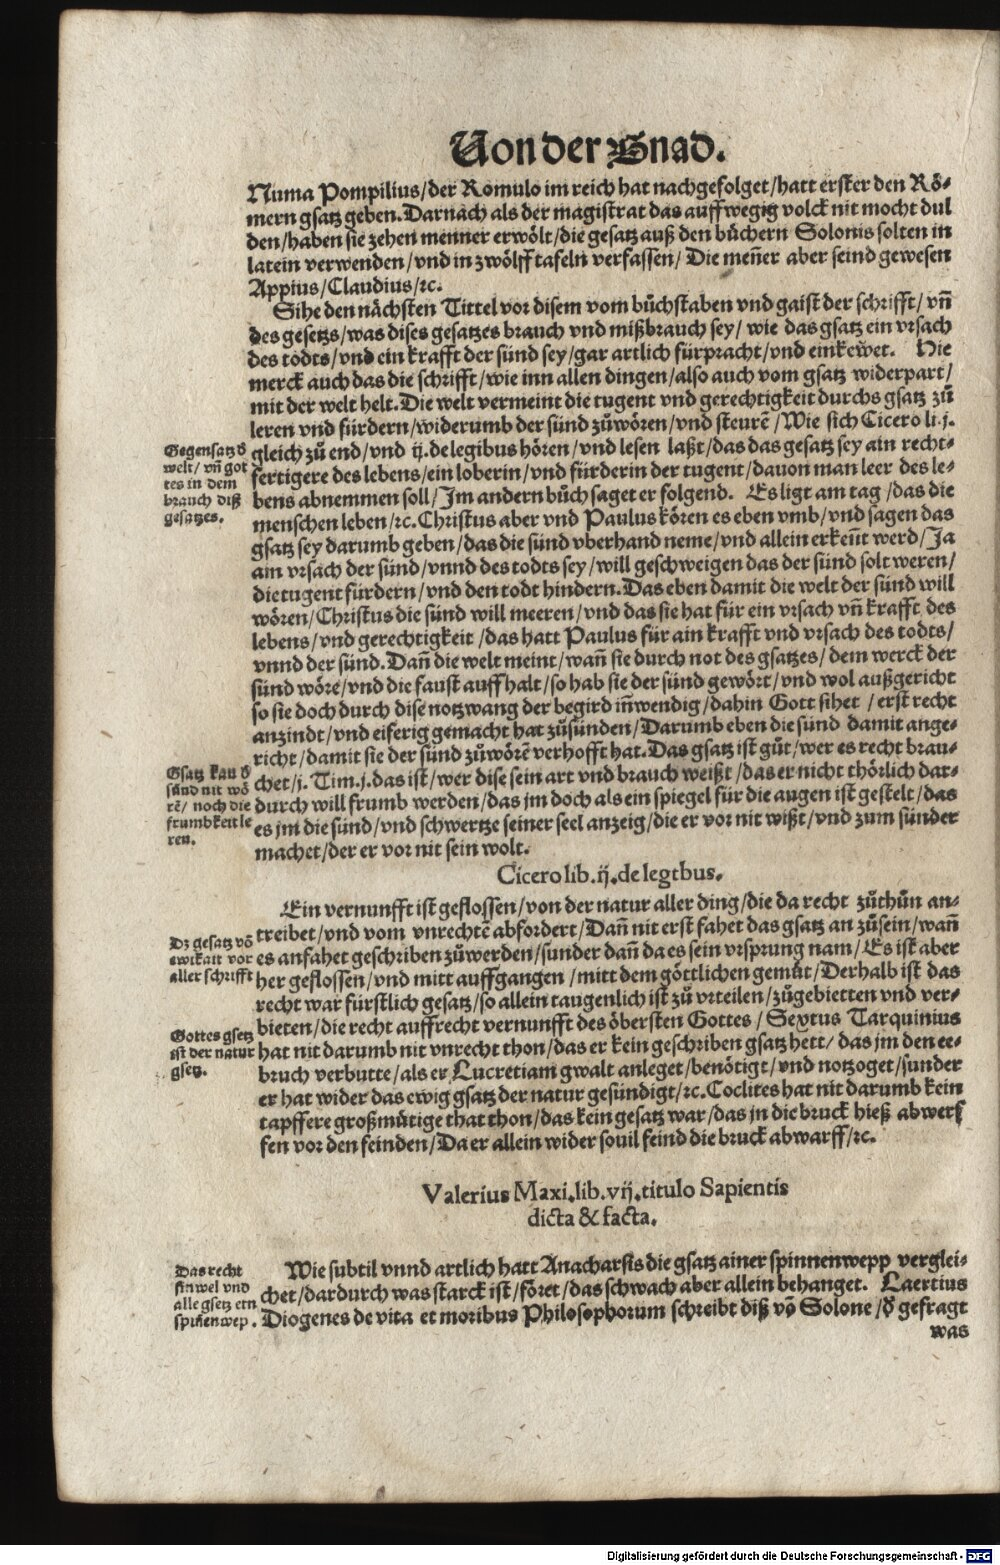 Von der Gnad.
Numa Pompilius/der Romulo im reich hat nachgefolget/hatt erster den Rö-
mern gsatz geben. Darnach als der magistrat das auffwegig volck nit mocht dul
den/haben sie zehen menner erwölt/die gesatz auß den bůchern Solonis solten in
latein verwenden/vnd in zwölff tafeln verfassen/ Die meñer aber seind gewesen
Appius/Claudius/ꝛc.
Sihe den nächsten Tittel vor disem vom bůchstaben vnd gaist der schrifft/vñ
des gesetzs/was dises gesatzes brauch vnd mißbrauch sey/ wie das gsatz ein vrsach
des todts/vnd ein krafft der sünd sey/gar artlich fürpracht/vnd einkewet. Hie
merck auch das die schrifft/wie inn allen dingen/also auch vom gsatz widerpart/
mit der welt helt. Die welt vermeint die tugent vnd gerechtigkeit durchs gsatz zů
leren vnd fürdern/widerumb der sünd zůwören/vnd steurē/Wie sich Cicero li.j.
Gegensatz d̕
welt/ vñ got
tes in dem
brauch diß
gesatzes.
gleich zů end/vnd ij.delegibus hören/vnd lesen laßt/das das gesatz sey ain recht-
fertigere des lebens/ein loberin/vnd fürderin der tugent/dauon man leer des le-
bens abnemmen soll/Im andern bůch saget er folgend. Es ligt am tag/das die
menschen leben/ꝛc.Christus aber vnd Paulus kören es eben vmb/vnd sagen das
gsatz sey darumb geben/das die sünd vberhand neme/vnd allein erkeñt werd/Ja
ain vrsach der sünd/vnnd des todts sey/will geschweigen das der sünd solt weren/
die tugent fürdern/vnd den todt hindern. Das eben damit die welt der sünd will
wören/Christus die sünd will meeren/vnd das sie hat für ein vrsach vñ krafft des
lebens/vnd gerechtigkeit/das hatt Paulus für ain krafft vnd vrsach des todts/
vnnd der sünd. Dañ die welt meint/wañ sie durch not des gsatzes/dem werck der
sünd wöre/vnd die faust auff halt/so hab sie der sünd gewört/vnd wol außgericht
so sie doch durch dise notzwang der begird iñwendig/dahin Gott sihet/erst recht
anzindt/vnd eiferig gemacht hat zůsünden/Darumb eben die sünd damit ange-
richt/damit sie der sünd zůwörē verhofft hat. Das gsatz ist gůt/wer es recht brau-
Gsatz kan d̕
sünd nit wö
rē/ noch die
frumbkeit le
ren.
chet/j. Tim.j.das ist/wer dise sein art vnd brauch weißt/das er nicht thörlich dar-
durch will frumb werden/das jm doch als ein spiegel für die augen ist gestelt/das
es jm die sünd/vnd schwertze seiner seel anzeig/die er vor nit wißt/vnd zum sünder
machet/der er vor nit sein wolt.
Cicero lib.ij.de legtbus.
Ein vernunfft ist geflossen/von der natur aller ding/die da recht zůthůn an-
Dz gesatz võ
ewikait vor
aller schrifft
treibet/vnd vom vnrechtē abfordert/Dañ nit erst fahet das gsatz an zůsein/wañ
es anfahet geschriben zůwerden/sunder dañ da es sein vrsprung nam/Es ist aber
her geflossen/vnd mitt auffgangen/mitt dem göttlichen gemůt/Derhalb ist das
recht war fürstlich gesatz/so allein taugenlich ist zů vrteilen/zůgebietten vnd ver-
Gottes gsetz
ist der natur
gsetz.
bieten/die recht auffrecht vernunfft des öbersten Gottes/ Sextus Tarquinius
hat nit darumb nit vnrecht thon/das er kein geschriben gsatz hett/das jm den ee-
bruch verbutte/als er Lucretiam gwalt anleget/benötigt/vnd notzoget/sunder
er hat wider das ewig gsatz der natur gesündigt/ꝛc.Coclites hat nit darumb kein
tapffere großmůtige that thon/das kein gesatz war/das jn die bruck hieß abwerf
fen vor den feinden/Da er allein wider souil feind die bruck abwarff/ꝛc.
Valerius Maxi.lib.vij.titulo Sapientis
dicta & facta.
Das recht
sinwel vnd
alle gsetz ein
spiñenwep.
Wie subtil vnnd artlich hatt Anacharsis die gsatz ainer spinnenwepp verglei-
chet/dardurch was starck ist/föret/das schwach aber allein behanget. Laertius
Diogenes de vita et moribus Philosophorum schreibt diß võ Solone/d̕ gefragt
was
Digitalisierung gefördert durch die Deutsche Forschungsgemeinschaft - DFG